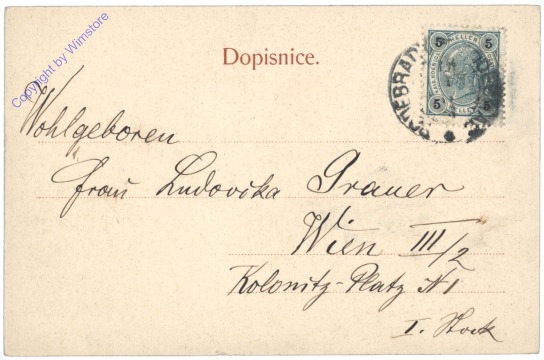 Copyright by Wimstore
Dopisnice.
5 5
5 5
PODĚBRADY
Wohlgeboren
Frau Ludovika Grauer
Wien III/2
Kolonitz-Platz N 1
I. Stock